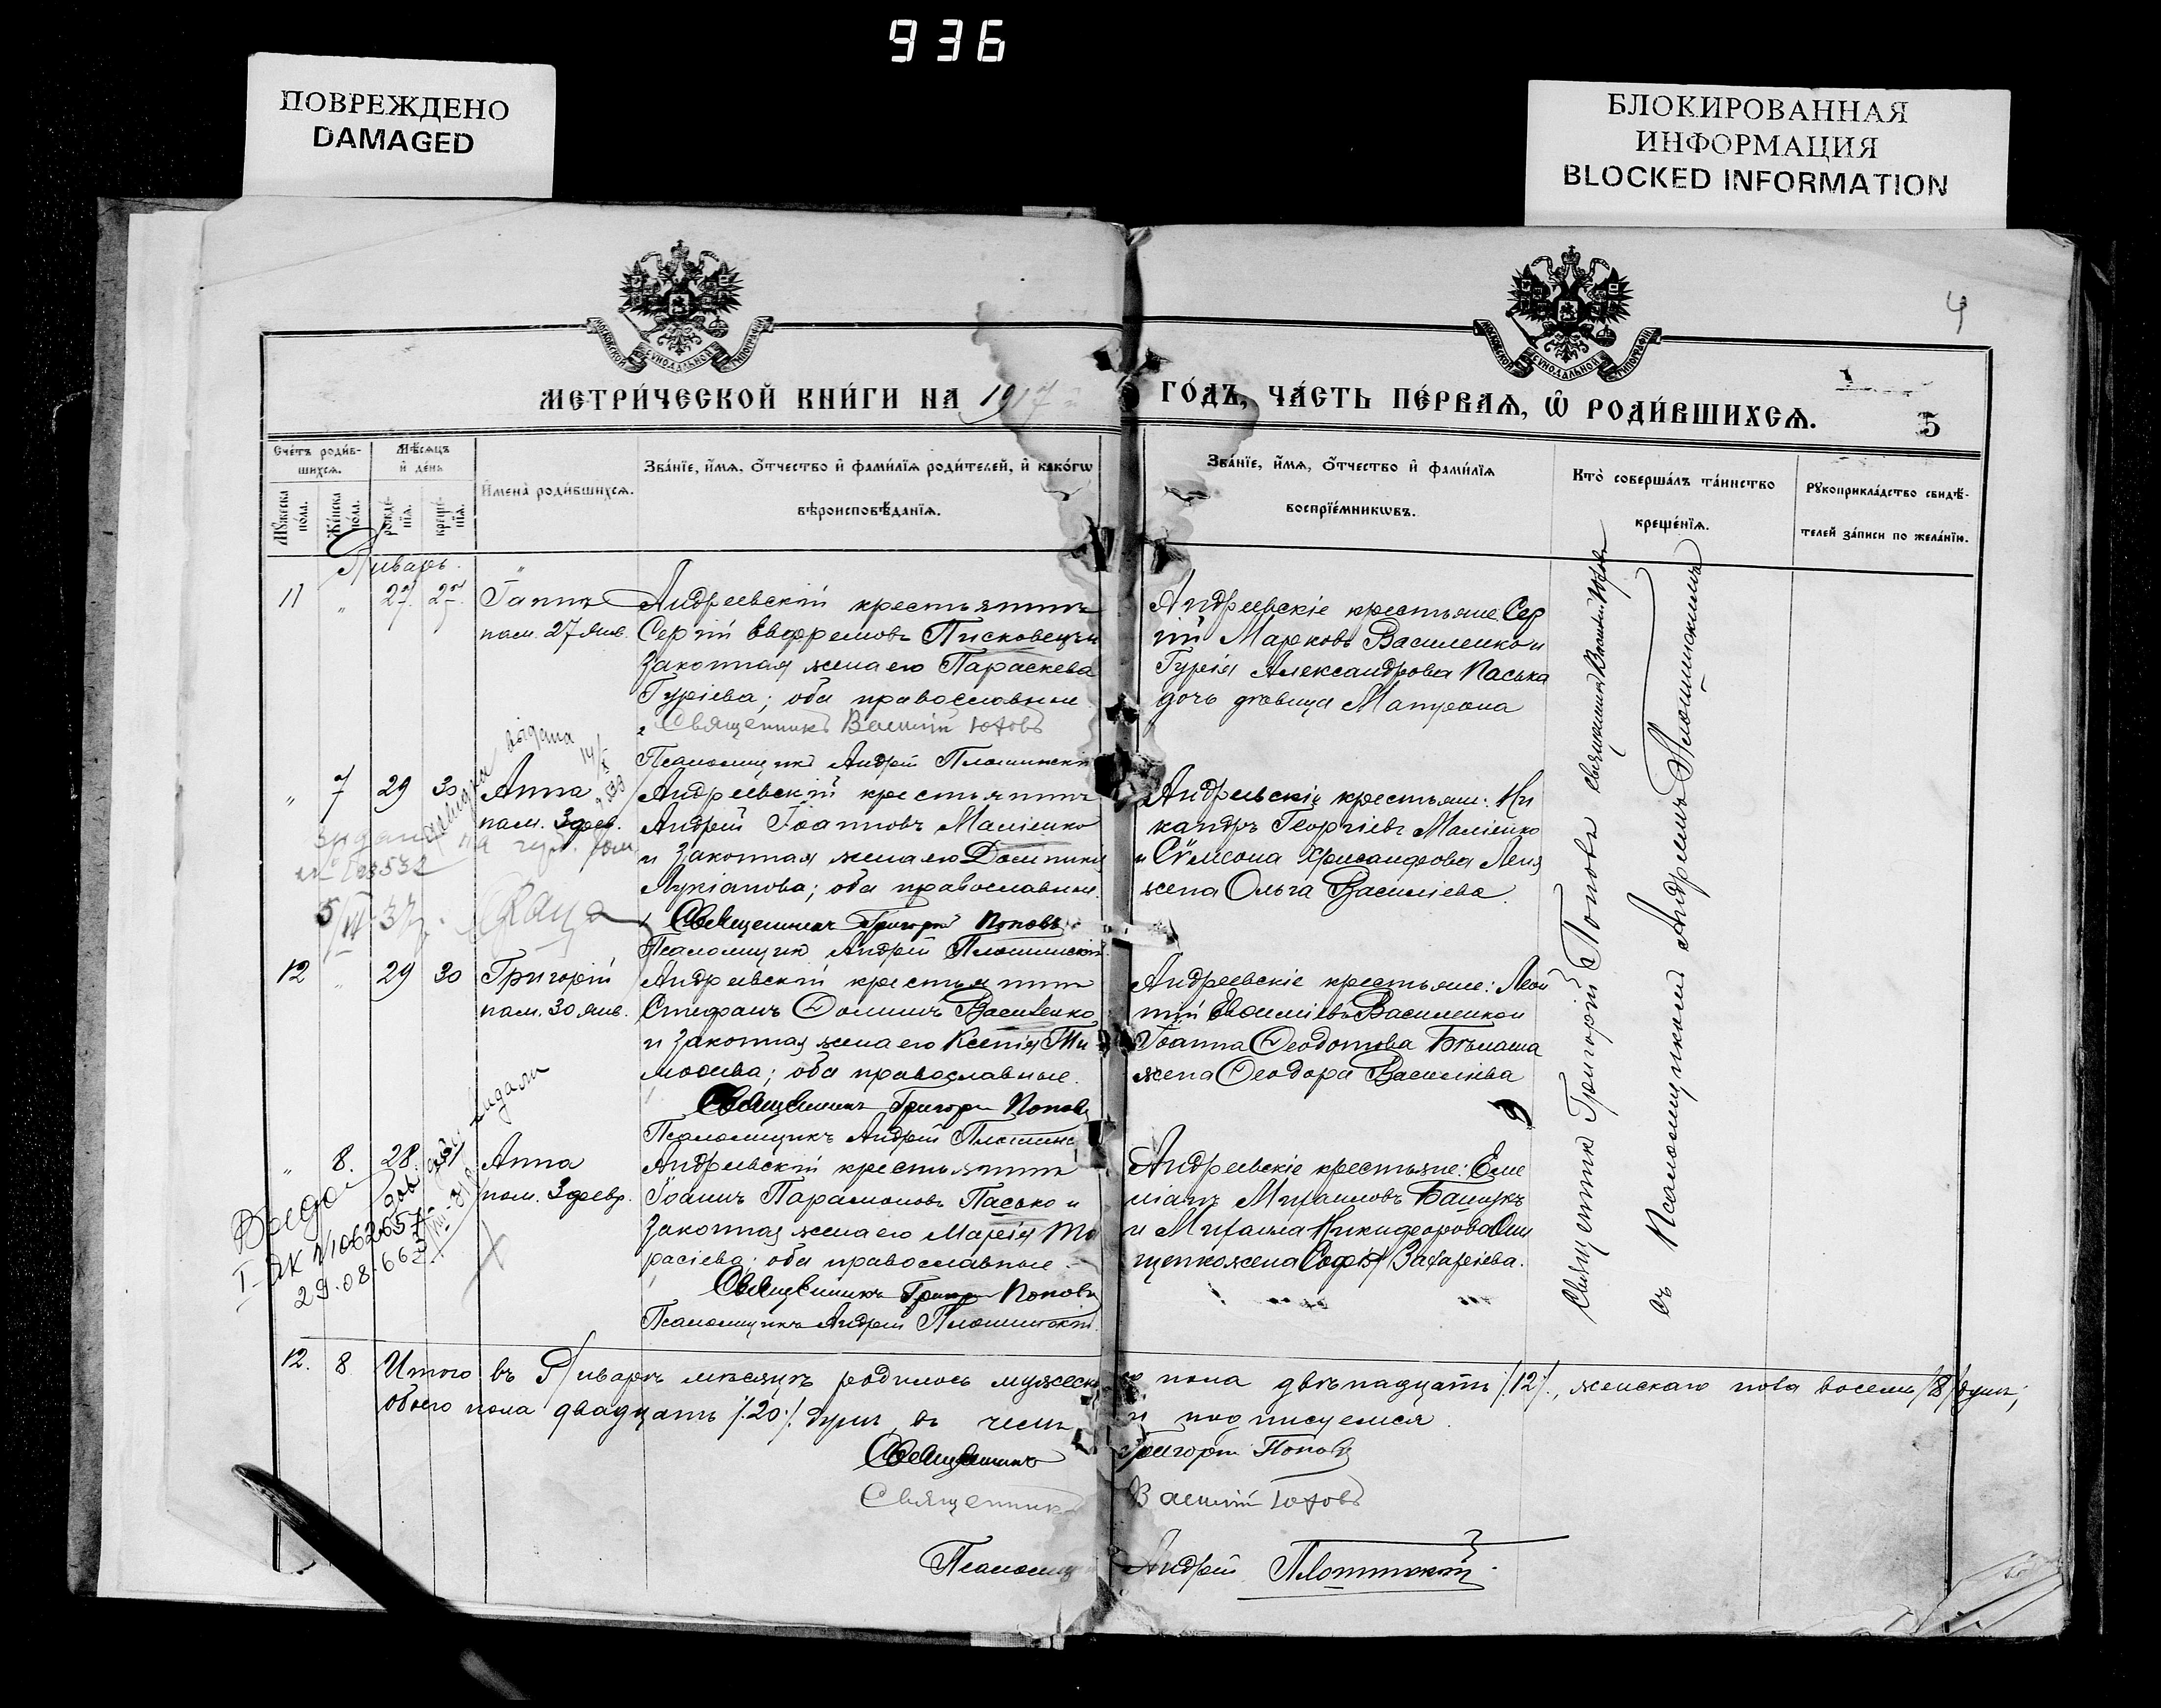 936
ПОВРЕЖДЕНО
DAMAGED
БЛОКИРОВАННАЯ
ИНФОРМАЦИЯ
BLOCKED INFORMATION
4
МОСКОВСКОЙ СѴНОДАЛЬНОЙ ТИПОГРАФІИ
МОСКОВСКОЙ СѴНОДАЛЬНОЙ ТИПОГРАФІИ
МЕТРИ́ЧЕСКОЙ КНИ́ГИ НА 1917 ГО́ДЪ, ЧА́СТЬ ПЕ́РВАѦ, Ѡ РОДИ́ВШИХСѦ.
5
Сче́тъ роди́в-
шихсѧ.
Мѣ́сѧцъ
и҆ де́нь
Мꙋ́жеска по́ла.
Же́нска по́ла.
рожде́-
нїѧ.
креще́-
нїѧ.
И҆мена̀ роди́вшихсѧ.
Зва́нїе, и҆́мѧ, ѻ҆́тчество и҆ фами́лїѧ роди́телей, и҆ како́гѡ
вѣроисповѣ́данїѧ.
Зва́нїе, и҆́мѧ, ѻ҆́тчество и҆ фами́лїѧ
воспрїе́мникѡвъ.
Кто̀ соверша́лъ та́инство
креще́нїѧ.
Рꙋкоприкла́дство свидѣ́-
телей за́писи по жела́нїю.
Январь
11 " 27 27
пам. 27 Янв.
Андреевскій крестьянинъ
Сергій Евфремовъ Писковецъ и
законная жена его Параскева
Гуріева; оба православные
Священникъ Василій Юховъ
Псаломщикъ Андрей Плошинскій
Андреевскіе крестьяне Сер
гій Марковъ Василенко и
Гурія Александрова Паська
дочь дѣвица Матрона
выдана
" 7 29 30 Анна
пам. 3 февр.
Андреевскій крестьянинъ
Андрей Іоанновъ Маліенко
и законная жена его Домникія
Лукіанова; оба православные.
Священникъ Григорій Поповъ
Псаломщикъ Андрей Плошинскій
Андреевскіе крестьяне: Ни
кандръ Георгіевъ Маліенко
и Сѵмеона Хрисанфова Леня
жена Ольга Василіева.
12 " 29 30 Григорій
пам. 30 янв.
Андреевскій крестьянинъ
Стефанъ Доминъ Василенко
и законная жена его Ксенія Ти
моѳеева; оба православные.
Священникъ Григорій Поповъ
Псаломщикъ Андрей Плошинс
Андреевскіе крестьяне: Леон
тій Евѳиміевъ Василенко и
Іоанна Ѳеодотова Бѣлаша
жена Ѳеодора Василіева
" 8. 28 31 Анна
пам. 3 февр.
Андреевскій крестьянинъ
Іоаннъ Парамоновъ Пасько и
законная жена его Марія Та
расіева; оба православные
Священникъ Григорій Поповъ
Псаломщикъ Андрей Плошинскій.
Андреевскіе крестьяне: Еме
ліанъ Михаиловъ Башукъ
и Михаила Никифорова Они
щенко жена Софія Захаріева.
I-ЯК №1062657
29.08.66
Священникъ Григорій Поповъ священникъ Василій Юховъ
съ Псаломщикомъ Андреемъ Плошинскимъ
12. 8. Итого въ Январѣ мѣсяцѣ родилось мужеского пола двѣнадцать /.12./, женскаго пола восемь /8/ душъ;
Обоего пола двадцать /.20./ душъ, въ чемъ и подписуемся.
Священникъ Григорій Поповъ
Священникъ Василій Юховъ
Псаломщ Андрей Плошинскій.